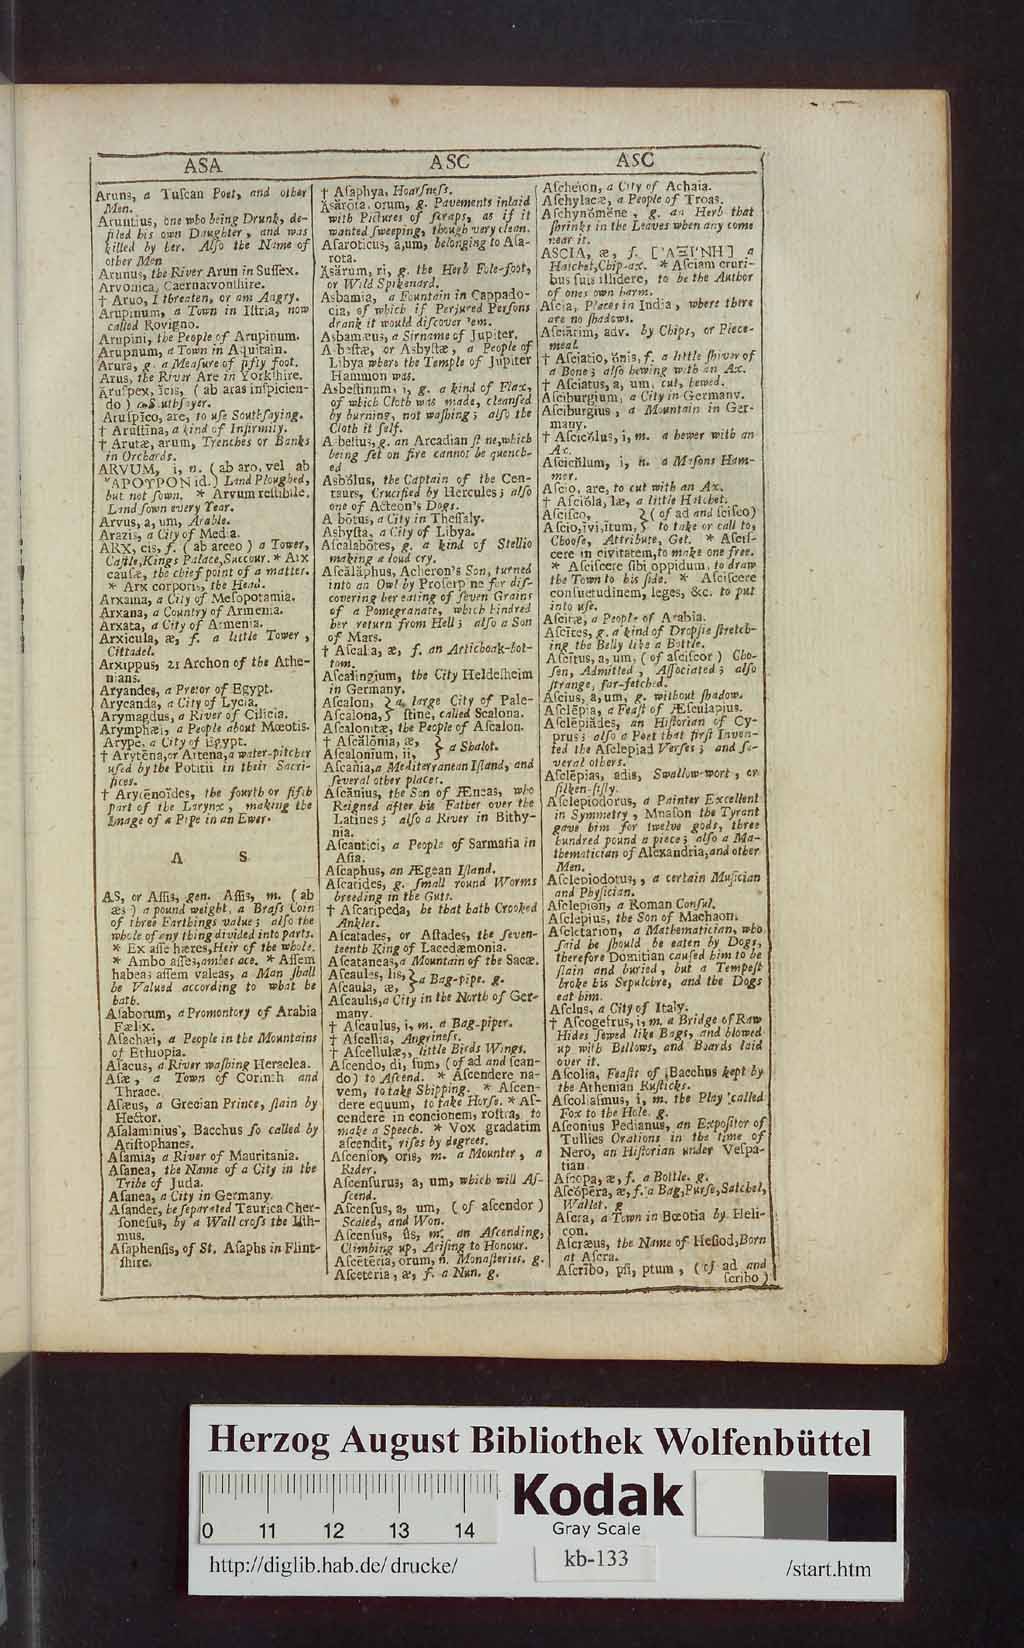 ASA
ASC
ASC
Aruns, a Tuſcan Poet, and other
Men.
Aruntius, one who being Drunk, de-
filed his own Daughter, and was
killed by her. Alſo the Name of
other Men
Arunus, the River Arun in Suſſex.
Arvonica, Caernarvonſhire.
† Aruo, I threaten, or am Angry.
Arupinum, a Town in Iſtria, now
called Rovigno.
Arupini, the People of Arupinum.
Arupnum, a Town in Aquitain.
Arura, g. a Meaſure of fifty foot.
Arus, the River Are in Yorkſhire.
Ăruſpex, ĭcis, ( ab aras inſpicien-
do )
Aruſpĭco, are, to uſe Southſaying.
† Aruſtīna, a kind of Infirmity.
† Arutæ, arum, Trenches or Banks
in Orchards.
ARVUM, i, n. ( ab aro, vel ab
ἌΡΟΥΡΟΝ id.) Land Ploughed,
but not ſown. * Arvum reſtibile,
Land ſown every Year.
Arvus, a, um, Arable.
Arazis, a City of Media.
ARX, cis, f. ( ab arceo ) a Tower,
Caſtle, Kings Palace, Succour. * Arx
cauſæ, the chief point of a matter.
* Arx corporis, the Head.
Arxama, a City of Meſopotamia.
Arxana, a Country of Armenia.
Arxata, a City of Armenia.
Arxicula, æ, f. a little Tower,
Cittadel.
Arxippus, 21 Archon of the Athe-
nians.
Aryandes, a Pretor of Egypt.
Arycanda, a City of Lycia.
Arymagdus, a River of Cilicia.
Arymphæi, a People about Mœotis.
Arype, a City of Egypt.
† Arytēna, or Artena, a water-pitcher
uſed by the Potitii in their Sacri-
fices.
† Arytēnoīdes, the fourth or fifth
part of the Larynx, making the
Image of a Pipe in an Ewer.
A S
AS, or Aſſis, gen. Aſſis, m. ( ab
æs ) a pound weight, a Braſs Coin
of three Farthings value; alſo the
whole of any thing divided into parts.
* Ex aſſe hæres, Heir of the whole.
* Ambo aſſes, ambes ace. * Aſſem
habeas aſſem valeas, a Man ſhall
be Valued according to what he
hath.
Aſaborum, a Promontory of Arabia
Fælix.
Aſachæi, a People in the Mountains
of Ethiopia.
Aſacus, a River waſhing Heraclea.
Aſæ, a Town of Corinth and
Thrace.
Aſæus, a Grecian Prince, ſlain by
Hector.
Aſalaminius, Bacchus ſo called by
Ariſtophanes.
Aſamia, a River of Mauritania.
Aſanea, the Name of a City in the
Tribe of Juda.
Aſanea, a City in Germany.
Aſander, he ſeparated Taurica Cher-
ſoneſus, by a Wall croſs the Iſth-
mus.
Aſaphenſis, of St. Aſaphs in Flint-
ſhire.
† Aſaphya, Hoarſneſs.
Ăsărōta, orum, g. Pavements inlaid
with Pictures of ſcraps, as if it
wanted ſweeping, though very clean.
Aſaroticus, a, um, belonging to Aſa-
rota.
Ăsărum, ri, g. the Herb Fole-foot,
or Wild Spikenard.
Asbamia, a Fountain in Cappado-
cia, of which if Perjured Perſons
drank it would diſcover 'em.
Asbamæus, a Sirname of Jupiter.
Aſbeſtæ, or Asbyſtæ, a People of
Libya where the Temple of Jupiter
Hammon was.
Asbeſtinum, i, g. a kind of Flax,
of which Cloth was made, cleanſed
by burning, not waſhing; alſo the
Cloth it ſelf.
Asbeſtus, g. an Arcadian ſtone, which
being ſet on fire cannot be quench-
ed
Asbŏlus, the Captain of the Cen-
taurs, Crucified by Hercules; alſo
one of Acteon's Dogs.
Asbōtus, a City in Theſſaly.
Asbyſta, a City of Libya.
Aſcalabōtes, g. a kind of Stellio
making a loud cry.
Aſcălăphus, Acheron's Son, turned
into an Owl by Proſerpine for diſ-
covering her eating of ſeven Grains
of a Pomegranate, which hindred
her return from Hell; alſo a Son
of Mars.
† Aſcalia, æ, f. an Artichoak-bot-
tom.
Aſcalingium, the City Heldeſheim
in Germany.
Aſcalon, } a large City of Pale-
Aſcalona, ſtine, called Scalona.
Aſcalonitæ, the People of Aſcalon.
† Aſcălōnia, æ, } a Shalot.
Aſcalonium, ii,
Aſcania, a Mediterranean Iſland, and
ſeveral other places.
Aſcānius, the Son of Æneas, who
Reigned after his Father over the
Latines; alſo a River in Bithy-
nia.
Aſcantici, a People of Sarmatia in
Aſia.
Aſcaphus, an Ægean Iſland.
Aſcarides, g. ſmall round Worms
breeding in the Guts.
† Aſcaripeda, he that hath Crooked
Ankles.
Aſcatades, or Aſtades, the ſeven-
teenth King of Lacedæmonia.
Aſcataneas, a Mountain of the Sacæ.
Aſcaules, lis, } a Bag-pipe. g.
Aſcaula, æ,
Aſcaulis, a City in the North of Ger-
many.
† Aſcaulus, i, m. a Bag-piper.
† Aſcellia, Angrineſs.
† Aſcellulæ, little Birds Wings.
Aſcendo, di, ſum, (of ad and ſcan-
do) to Aſcend. * Aſcendere na-
vem, to take Shipping. * Aſcen-
dere equum, to take Horſe. * Aſ-
cendere in concionem, roſtra, to
make a Speech. * Vox gradatim
aſcendit, riſes by degrees.
Aſcenſor, oris, m. a Mounter, a
Rider.
Aſcenſurus, a, um, which will Aſ-
ſcend.
Aſcenſus, a, um, (of aſcendor)
Scaled, and Won.
Aſcenſus, ûs, m. an Aſcending,
Climbing up, Ariſing to Honour.
Aſcetēria, orum, n. Monaſteries. g.
Aſceteria, æ, f. a Nun. g.
Aſcheion, a City of Achaia.
Aſchylacæ, a People of Troas.
Aſchynŏmēne, g. an Herb that
ſhrinks in the Leaves when any come
near it.
ASCIA, æ, f. [ἈΞΙ'ΝΗ] a
Hatchet, Chip-ax. * Aſciam cruri-
bus ſuis illidere, to be the Author
of ones own harm.
Aſcia, Places in India, where there
are no ſhadows.
Aſciātim, adv. by Chips, or Piece-
meal.
† Aſciatio, ōnis, f. a little ſhiver of
a Bone; alſo hewing with an Ax.
† Aſciatus, a, um, cut, hewed.
Aſciburgium, a City in Germany.
Aſciburgius, a Mountain in Ger-
many.
† Aſcicŭlus, i, m. a hewer with an
Ax.
Aſcicŭlum, i, n. a Maſons Ham-
mer.
Aſcio, are, to cut with an Ax.
† Aſciŏla, læ, a little Hatchet.
Aſciſco, } ( of ad and ſciſco)
Aſcio, ivi, itum, to take or call to,
Chooſe, Attribute, Get. * Aſciſ-
cere in civitatem, to make one free.
* Aſciſcere ſibi oppidum, to draw
the Town to his ſide. * Aſciſcere
conſuetudinem, leges, &c. to put
into uſe.
Aſcitæ, a People of Arabia.
Aſcītes, g. a kind of Dropſie ſtretch-
ing the Belly like a Bottle.
Aſcitus, a, um, ( of aſciſcor ) Cho-
ſen, Admitted, Aſſociated; alſo
ſtrange, far-fetched.
Aſcius, a, um, g. without ſhadow.
Aſclēpia, a Feaſt of Æſculapius.
Aſclēpiădes, an Hiſtorian of Cy-
prus; alſo a Poet that firſt Inven-
ted the Aſclepiad Verſes; and ſe-
veral others.
Aſclēpias, adis, Swallow-wort, or
ſilken-ſiſly.
Aſclepiodorus, a Painter Excellent
in Symmetry, Mnaſon the Tyrant
gave him for twelve gods, three
hundred pound a piece; alſo a Ma-
thematician of Alexandria, and other
Men.
Aſclepiodotus, a certain Muſician
and Phyſician.
Aſclepion, a Roman Conſul.
Aſclepius, the Son of Machaon.
Aſcletarion, a Mathematician, who
ſaid he ſhould be eaten by Dogs,
therefore Domitian cauſed him to be
ſlain and buried, but a Tempeſt
broke his Sepulchre, and the Dogs
eat him.
Aſclus, a City of Italy.
† Aſcogefrus, i, m. a Bridge of Raw
Hides ſewed like Bags, and blowed
up with Bellows, and Boards laid
over it.
Aſcolia, Feaſts of Bacchus kept by
the Athenian Ruſticks.
Aſcoliaſmus, i, m. the Play called
Fox to the Hole. g.
Aſconius Pedianus, an Expoſitor of
Tullies Orations in the time of
Nero, an Hiſtorian under Veſpa-
tian.
Aſcopa, æ, f. a Bottle. g.
Aſcŏpēra, æ, f. a Bag, Purſe, Satchel,
Wallet. g
Aſcra, a Town in Bœotia by Heli-
con.
Aſcræus, the Name of Heſiod, Born
at Aſcra.
Aſcrībo, pſi, ptum, (of ad and
ſcribo)
Herzog August Bibliothek Wolfenbüttel
Kodak
Gray Scale
0 11 12 13 14
kb-133
http://diglib.hab.de/drucke/
/start.htm